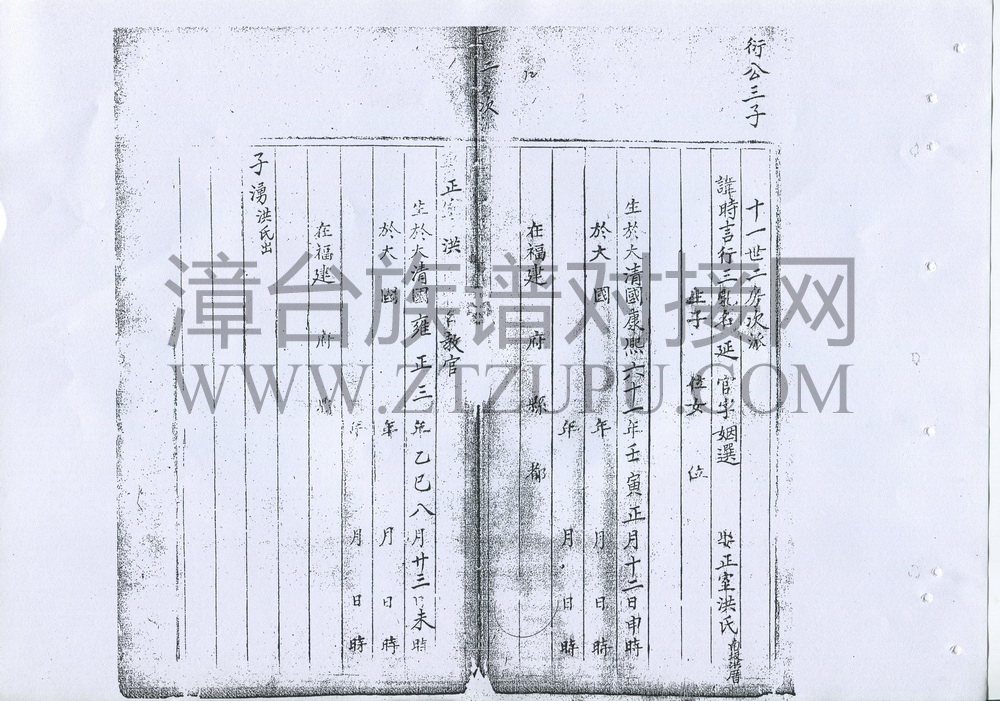 衍公三子
十一世二房次派
諱時言行三乳名延官字姻選 娶正室洪氏
生子 位女 位
生於大清國康熙六十一年壬寅正月十二日申時
於大 國 年 月 日 時
年 月 日 時
在福建 府 縣 都
二 次
正室 洪 教官
生於大清國雍正三年乙巳八月廿三日未時
於大 國 年 月 日 時
年 月 日 時
在福建 府 縣
子湧洪氏出
漳台族谱对接网
WWW.ZTZUPU.COM